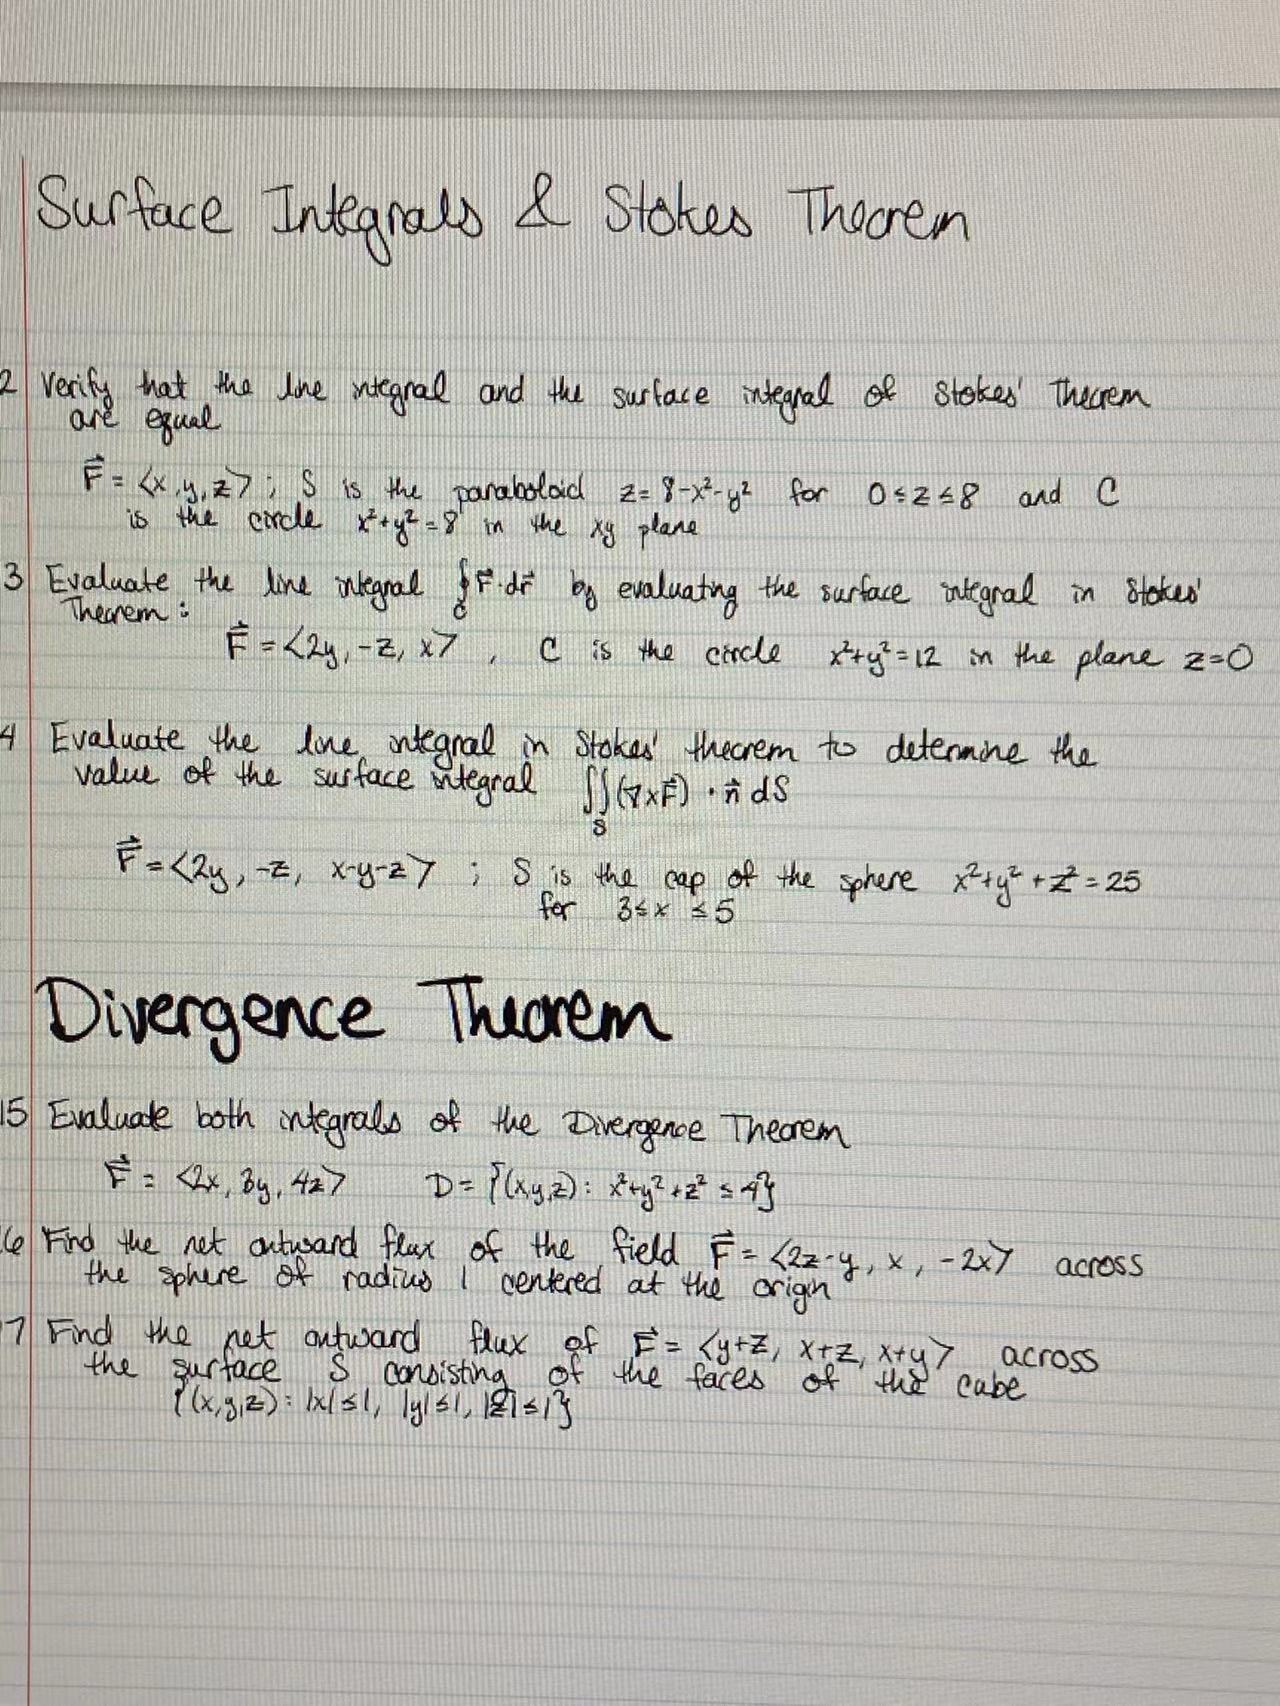 Surface Integrals & Stokes Theorem
2 Verify that the line integral and the surface integral of Stokes' Theorem
are equal
F⃗ = <x,y,z>; S is the paraboloid z= 8-x²-y² for 0≤z≤8 and C
is the circle x²+y²=8 in the xy plane
3 Evaluate the line integral ∮_C F⃗·dr⃗ by evaluating the surface integral in Stokes'
Theorem:
F⃗ = <2y, -z, x>, C is the circle x²+y²=12 in the plane z=0
4 Evaluate the line integral in Stokes' theorem to determine the
value of the surface integral ∬_S (∇×F⃗)·n⃗ dS
F⃗=<2y, -z, x-y-z>; S is the cap of the sphere x²+y²+z²=25
for 3≤x≤5
Divergence Theorem
15 Evaluate both integrals of the Divergence Theorem
F⃗ = <2x, 3y, 4z> D= {(x,y,z): x²+y²+z² ≤4}
16 Find the net outward flux of the field F⃗ = <2z-y, x, -2x> across
the sphere of radius 1 centered at the origin
7 Find the net outward flux of F⃗ = <y+z, x+z, x+y> across
the surface S consisting of the faces of the cube
{(x,y,z): |x|≤1, |y|≤1, |z|≤1}